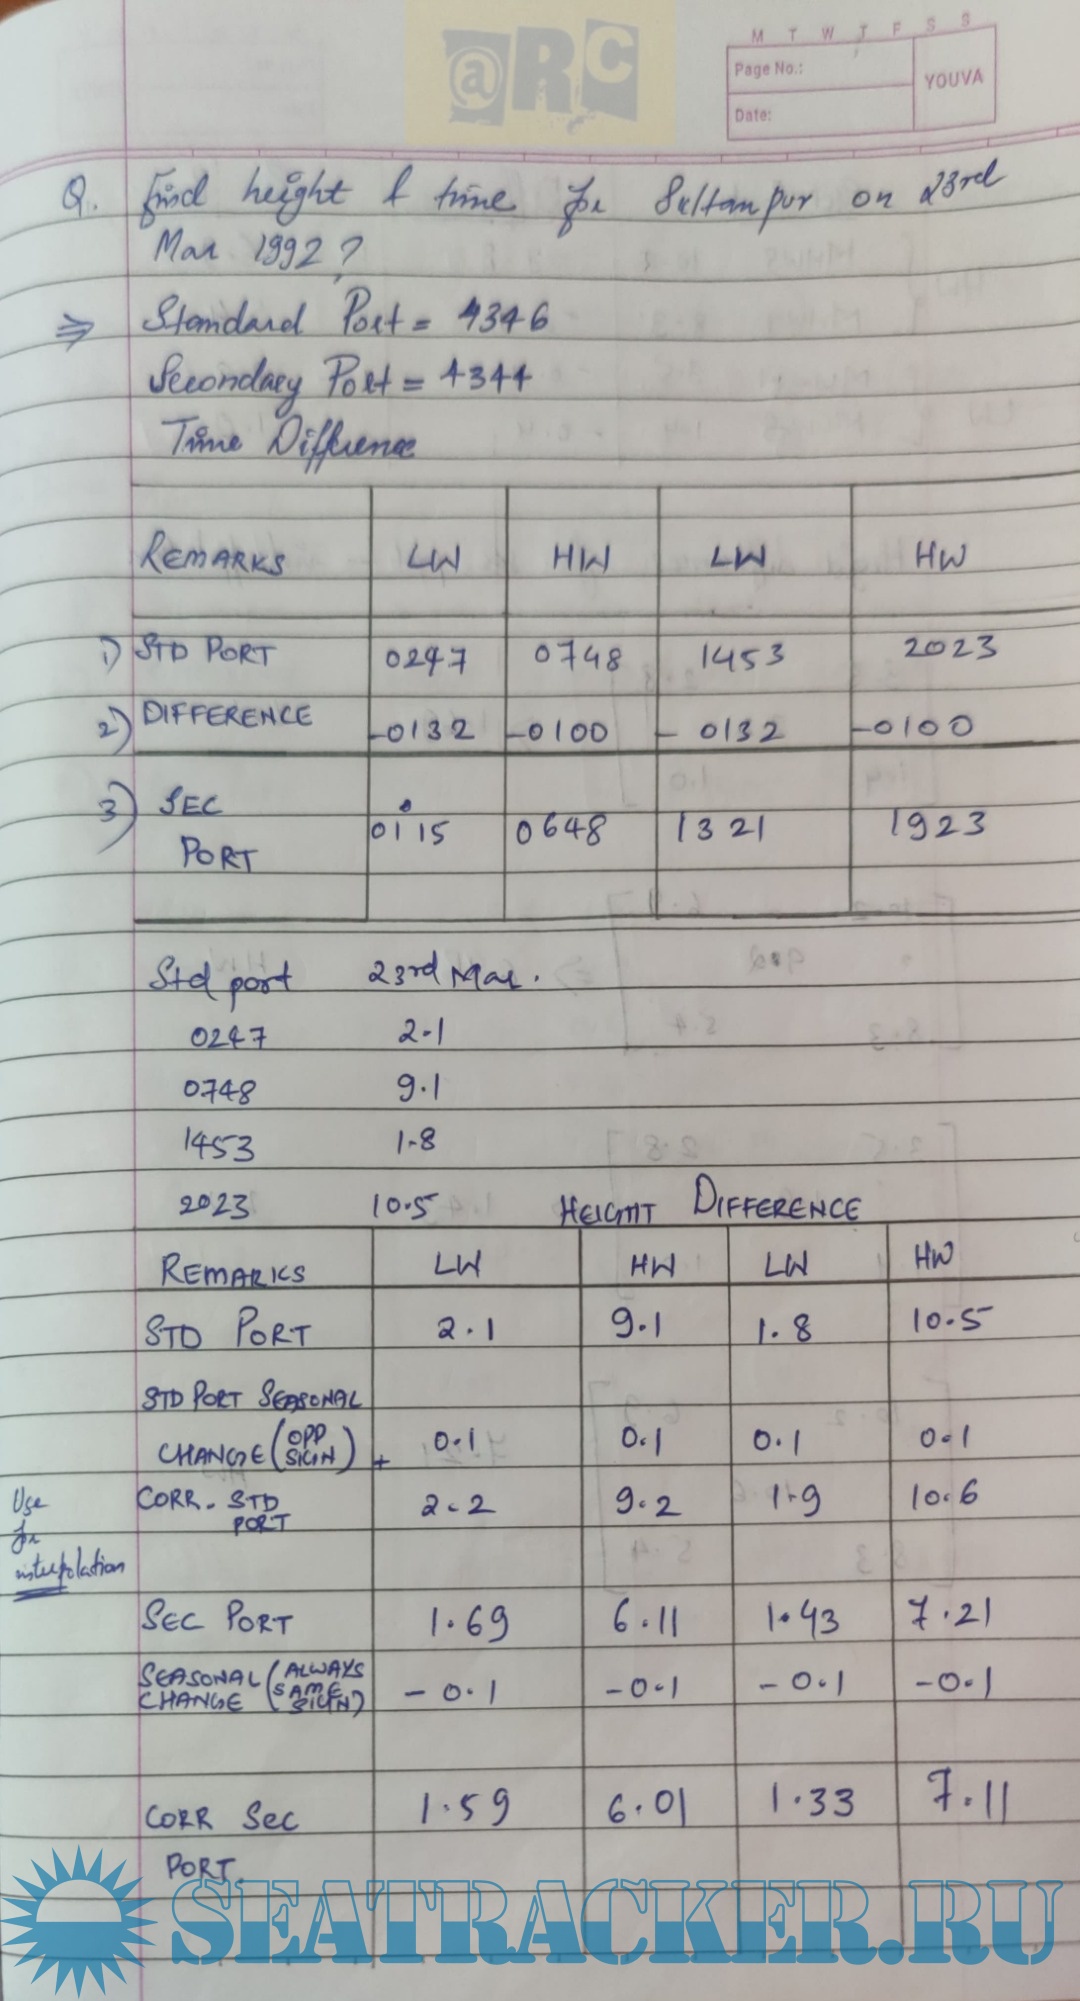 @RC
M T W T F S S
Page No.:
YOUVA
Date:
Q. Find height & time for Sultanpur on 23rd
Mar 1992?
⇒ Standard Port = 4346
Secondary Port = 4344
Time Difference
REMARKS LW HW LW HW
1) STD PORT 0247 0748 1453 2023
2) DIFFERENCE -0132 -0100 - 0132 -0100
3) SEC PORT 0115 0648 1321 1923
Std port 23rd Mar.
0247 2.1
0748 9.1
1453 1.8
2023 10.5 HEIGHT DIFFERENCE
REMARKS LW HW LW HW
STD PORT 2.1 9.1 1.8 10.5
STD PORT SEASONAL
CHANGE (OPP SIGN) + 0.1 0.1 0.1 0.1
Use for interpolation
CORR. STD PORT 2.2 9.2 1.9 10.6
SEC PORT 1.69 6.11 1.43 7.21
SEASONAL CHANGE (ALWAYS SAME SIGN) - 0.1 -0.1 - 0.1 -0.1
CORR SEC PORT. 1.59 6.01 1.33 7.11
SEATRACKER.RU